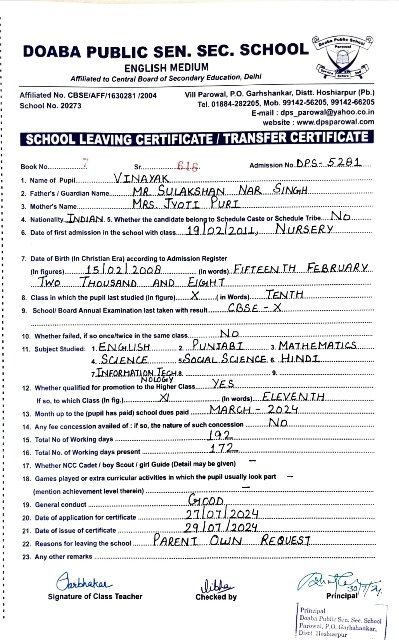 DOABA PUBLIC SEN. SEC. SCHOOL
Doaba Public School
Parowal
ENGLISH MEDIUM
Affiliated to Central Board of Secondary Education, Delhi
Affiliated No. CBSE/AFF/1630281 /2004
School No. 20273
Vill Parowal, P.O. Garhshankar, Distt. Hoshiarpur (Pb.)
Tel. 01884-282205, Mob. 99142-56205, 99142-66205
E-mail : dps_parowal@yahoo.co.in
website : www.dpsparowal.com
SCHOOL LEAVING CERTIFICATE / TRANSFER CERTIFICATE
Book No. 7 Sr. 616 Admission No. DPS-5281
1. Name of Pupil VINAYAK
2. Father's / Guardian Name MR SULAKSHAN NAR SINGH
3. Mother's Name MRS. JYOTI PURI
4. Nationality INDIAN. 5. Whether the candidate belong to Schedule Caste or Schedule Tribe No
6. Date of first admission in the school with class 19/02/2011, NURSERY
7. Date of Birth (In Christian Era) according to Admission Register
(In figures) 15/02/2008 (In words) FIFTEENTH FEBRUARY
TWO THOUSAND AND EIGHT
8. Class in which the pupil last studied (In figure) X (in Words) TENTH
9. School/ Board Annual Examination last taken with result CBSE - X
10. Whether failed, if so once/twice in the same class No
11. Subject Studied: 1. ENGLISH 2. PUNJABI 3. MATHEMATICS
4. SCIENCE 5. SOCIAL SCIENCE 6. HINDI
7. INFORMATION TECH- 8. 9.
NOLOGY
12. Whether qualified for promotion to the Higher Class YES
If so, to which Class (In fig.) XI (In Words) ELEVENTH
13. Month up to the (pupil has paid) school dues paid MARCH - 2024
14. Any fee concession availed of : if so, the nature of such concession No
15. Total No of Working days 192
16. Total No. of Working days present 172
17. Whether NCC Cadet / boy Scout / girl Guide (Detail may be given) –
18. Games played or extra curricular activities in which the pupil usually look part –
(mention achievement level therein) –
19. General conduct GOOD
20. Date of application for certificate 27/07/2024
21. Date of issue of certificate 29/07/2024
22. Reasons for leaving the school PARENT OWN REQUEST
23. Any other remarks
Signature of Class Teacher Checked by Principal
Principal
Doaba Public Sen. Sec. School
Parowal, P.O. Garhshankar,
Distt. Hoshiarpur